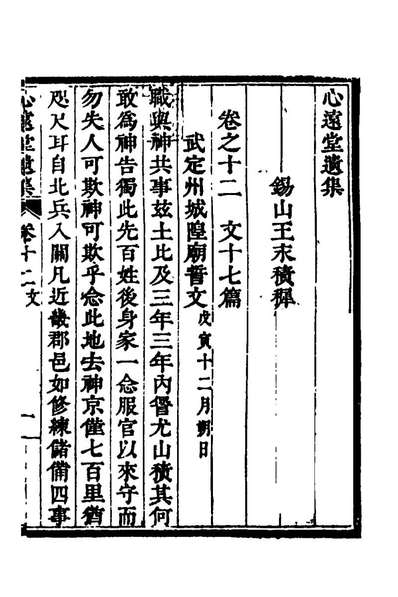 心遠堂遺集
錫山王永積穉
卷之十二　文十七篇
武定州城隍廟誓文戊寅十二月朔日
職與神共事茲土比及三年三年內愆尤山積其何
敢為神告獨此先百姓後身家一念服官以來守而
勿失人可欺神可欺乎念此地去神京僅七百里猶
咫尺耳自北兵入關凡近畿郡邑如修練儲備四事
心遠堂遺集　卷十二文　一